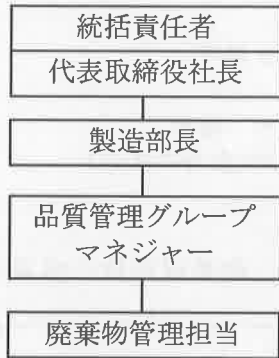 統括責任者
代表取締役社長
製造部長
品質管理グループ
マネジャー
廃棄物管理担当